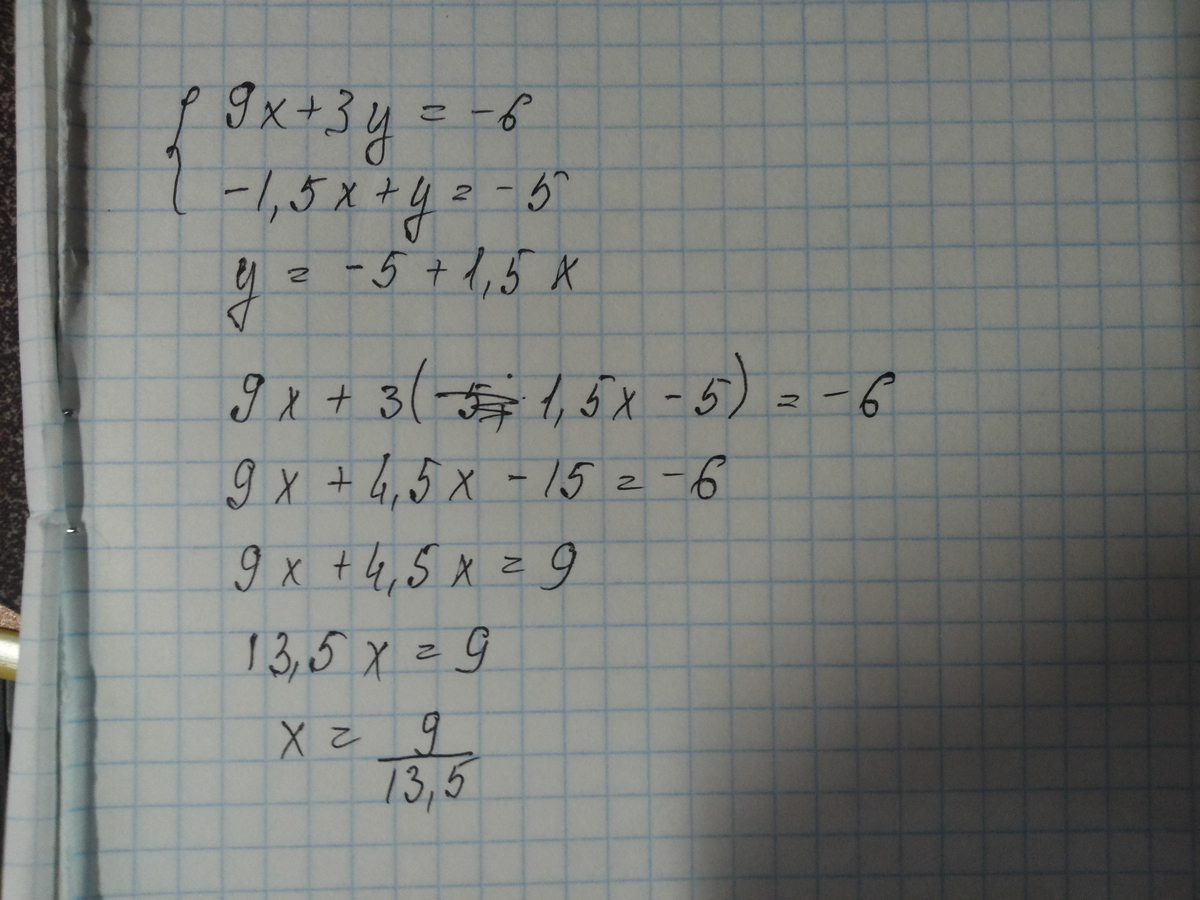 { 9x+3y = -6
-1,5x+y = -5
y = -5+1,5x
9x + 3(1,5x-5) = -6
9x + 4,5x - 15 = -6
9x + 4,5x = 9
13,5x = 9
x = 9/13,5